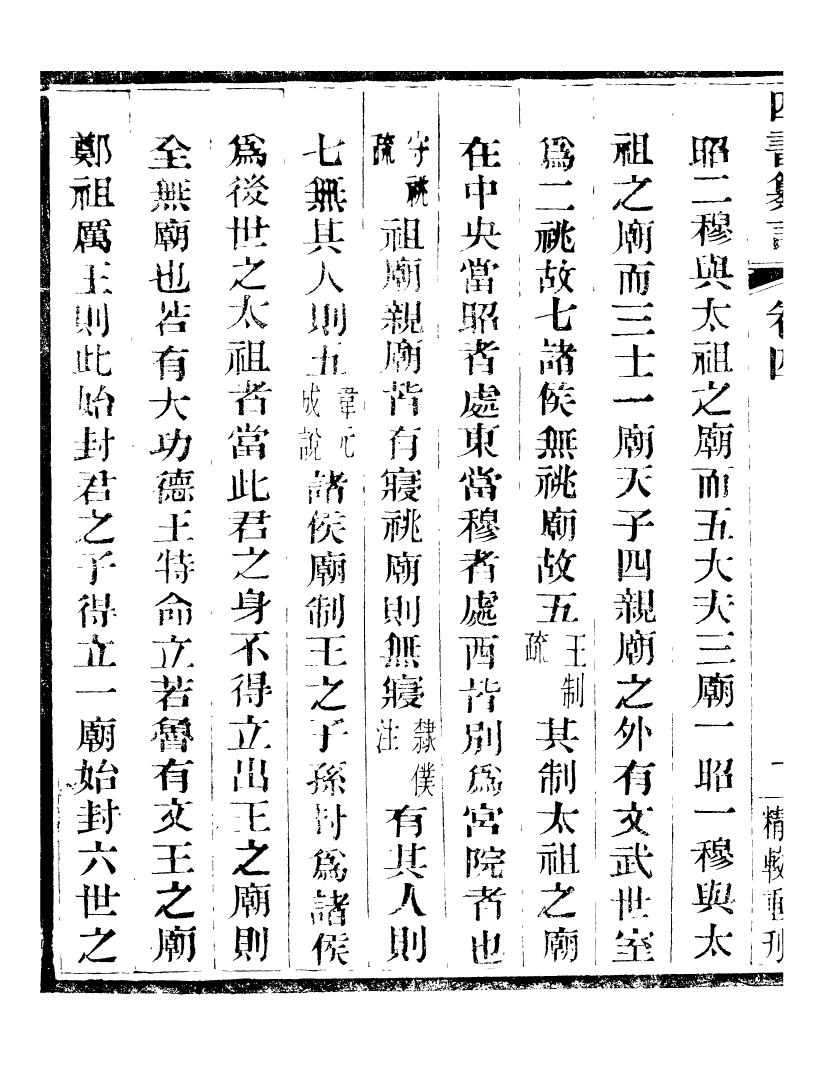 四書纂言 卷四 二 精較重刊
昭二穆與太祖之廟而五大夫三廟一昭一穆與太
祖之廟而三士一廟天子四親廟之外有文武世室
爲二祧故七諸侯無祧廟故五王制疏其制太祖之廟
在中央當昭者處東當穆者處西皆別爲宮院者也
守祧疏祖廟親廟皆有寢祧廟則無寢隸僕注有其人則
七無其人則五韋元成說諸侯廟制王之子孫封爲諸侯
爲後世之太祖者當此君之身不得立出王之廟則
全無廟也若有大功德王特命立若魯有文王之廟
鄭祖厲王則此始封君之子得立一廟始封六世之